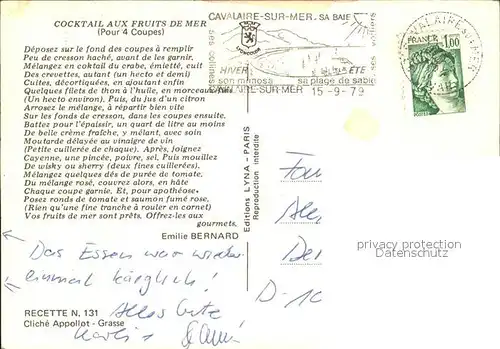 COCKTAIL AUX FRUITS DE MER
(Pour 4 Coupes)
Déposez sur le fond des coupes à remplir
Peu de cresson haché, avant de les garnir.
Mélangez en cocktail du crabe, émietté, cuit
Des crevettes, autant (un hecto et demi)
Cuites, décortiquées, en ajoutant enfin
Quelques filets de thon à l'huile, en morceaux
(Un hecto environ). Puis, du jus d'un citron
Arrosez le mélange, à répartir bien vite
Sur les fonds de cresson, dans les coupes ensuite.
Battez pour l'épaissir, un quart de litre au moins
De belle crème fraîche, y mêlant, avec soin
Moutarde délayée au vinaigre de vin
(Petite cuillerée de chaque). Après, joignez
Cayenne, une pincée, poivre, sel, Puis mouillez
De wisky ou sherry (deux fines cuillerées).
Mélangez quelques dés de purée de tomate,
Du mélange rosé, couvrez alors, en hâte
Chaque coupe garnie. Et, pour apothéose,
Posez ronds de tomate et saumon fumé rose,
(Rien qu'une fine tranche à rouler en cornet)
Vos fruits de mer sont prêts. Offrez-les aux
gourmets.
Emilie BERNARD
Das Essen war wieder
einmal kärglich!
Alles Gute
RECETTE N. 131
Cliché Appollot - Grasse
Editions LYNA - PARIS
Reproduction interdite
CAVALAIRE-SUR-MER SA BAIE
ses collines
ses voiliers
HIVER
ETE
son mimosa
sa plage de sable
CAVALAIRE-SUR-MER 15-9-79
FRANCE 1,00
D-
protected by copyright
Datenschutz